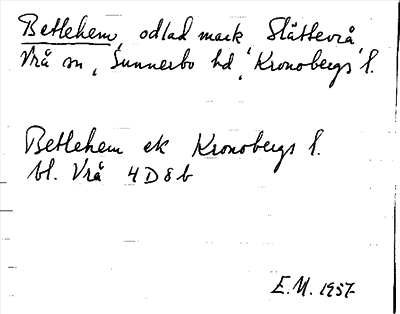 Betlehem, odlad mark, Slättevrå,
Vrå sn, Sunnerbo hd, Kronobergs l.
Betlehem ek Kronobergs l.
bl. Vrå 4D8b
E.M. 1957.